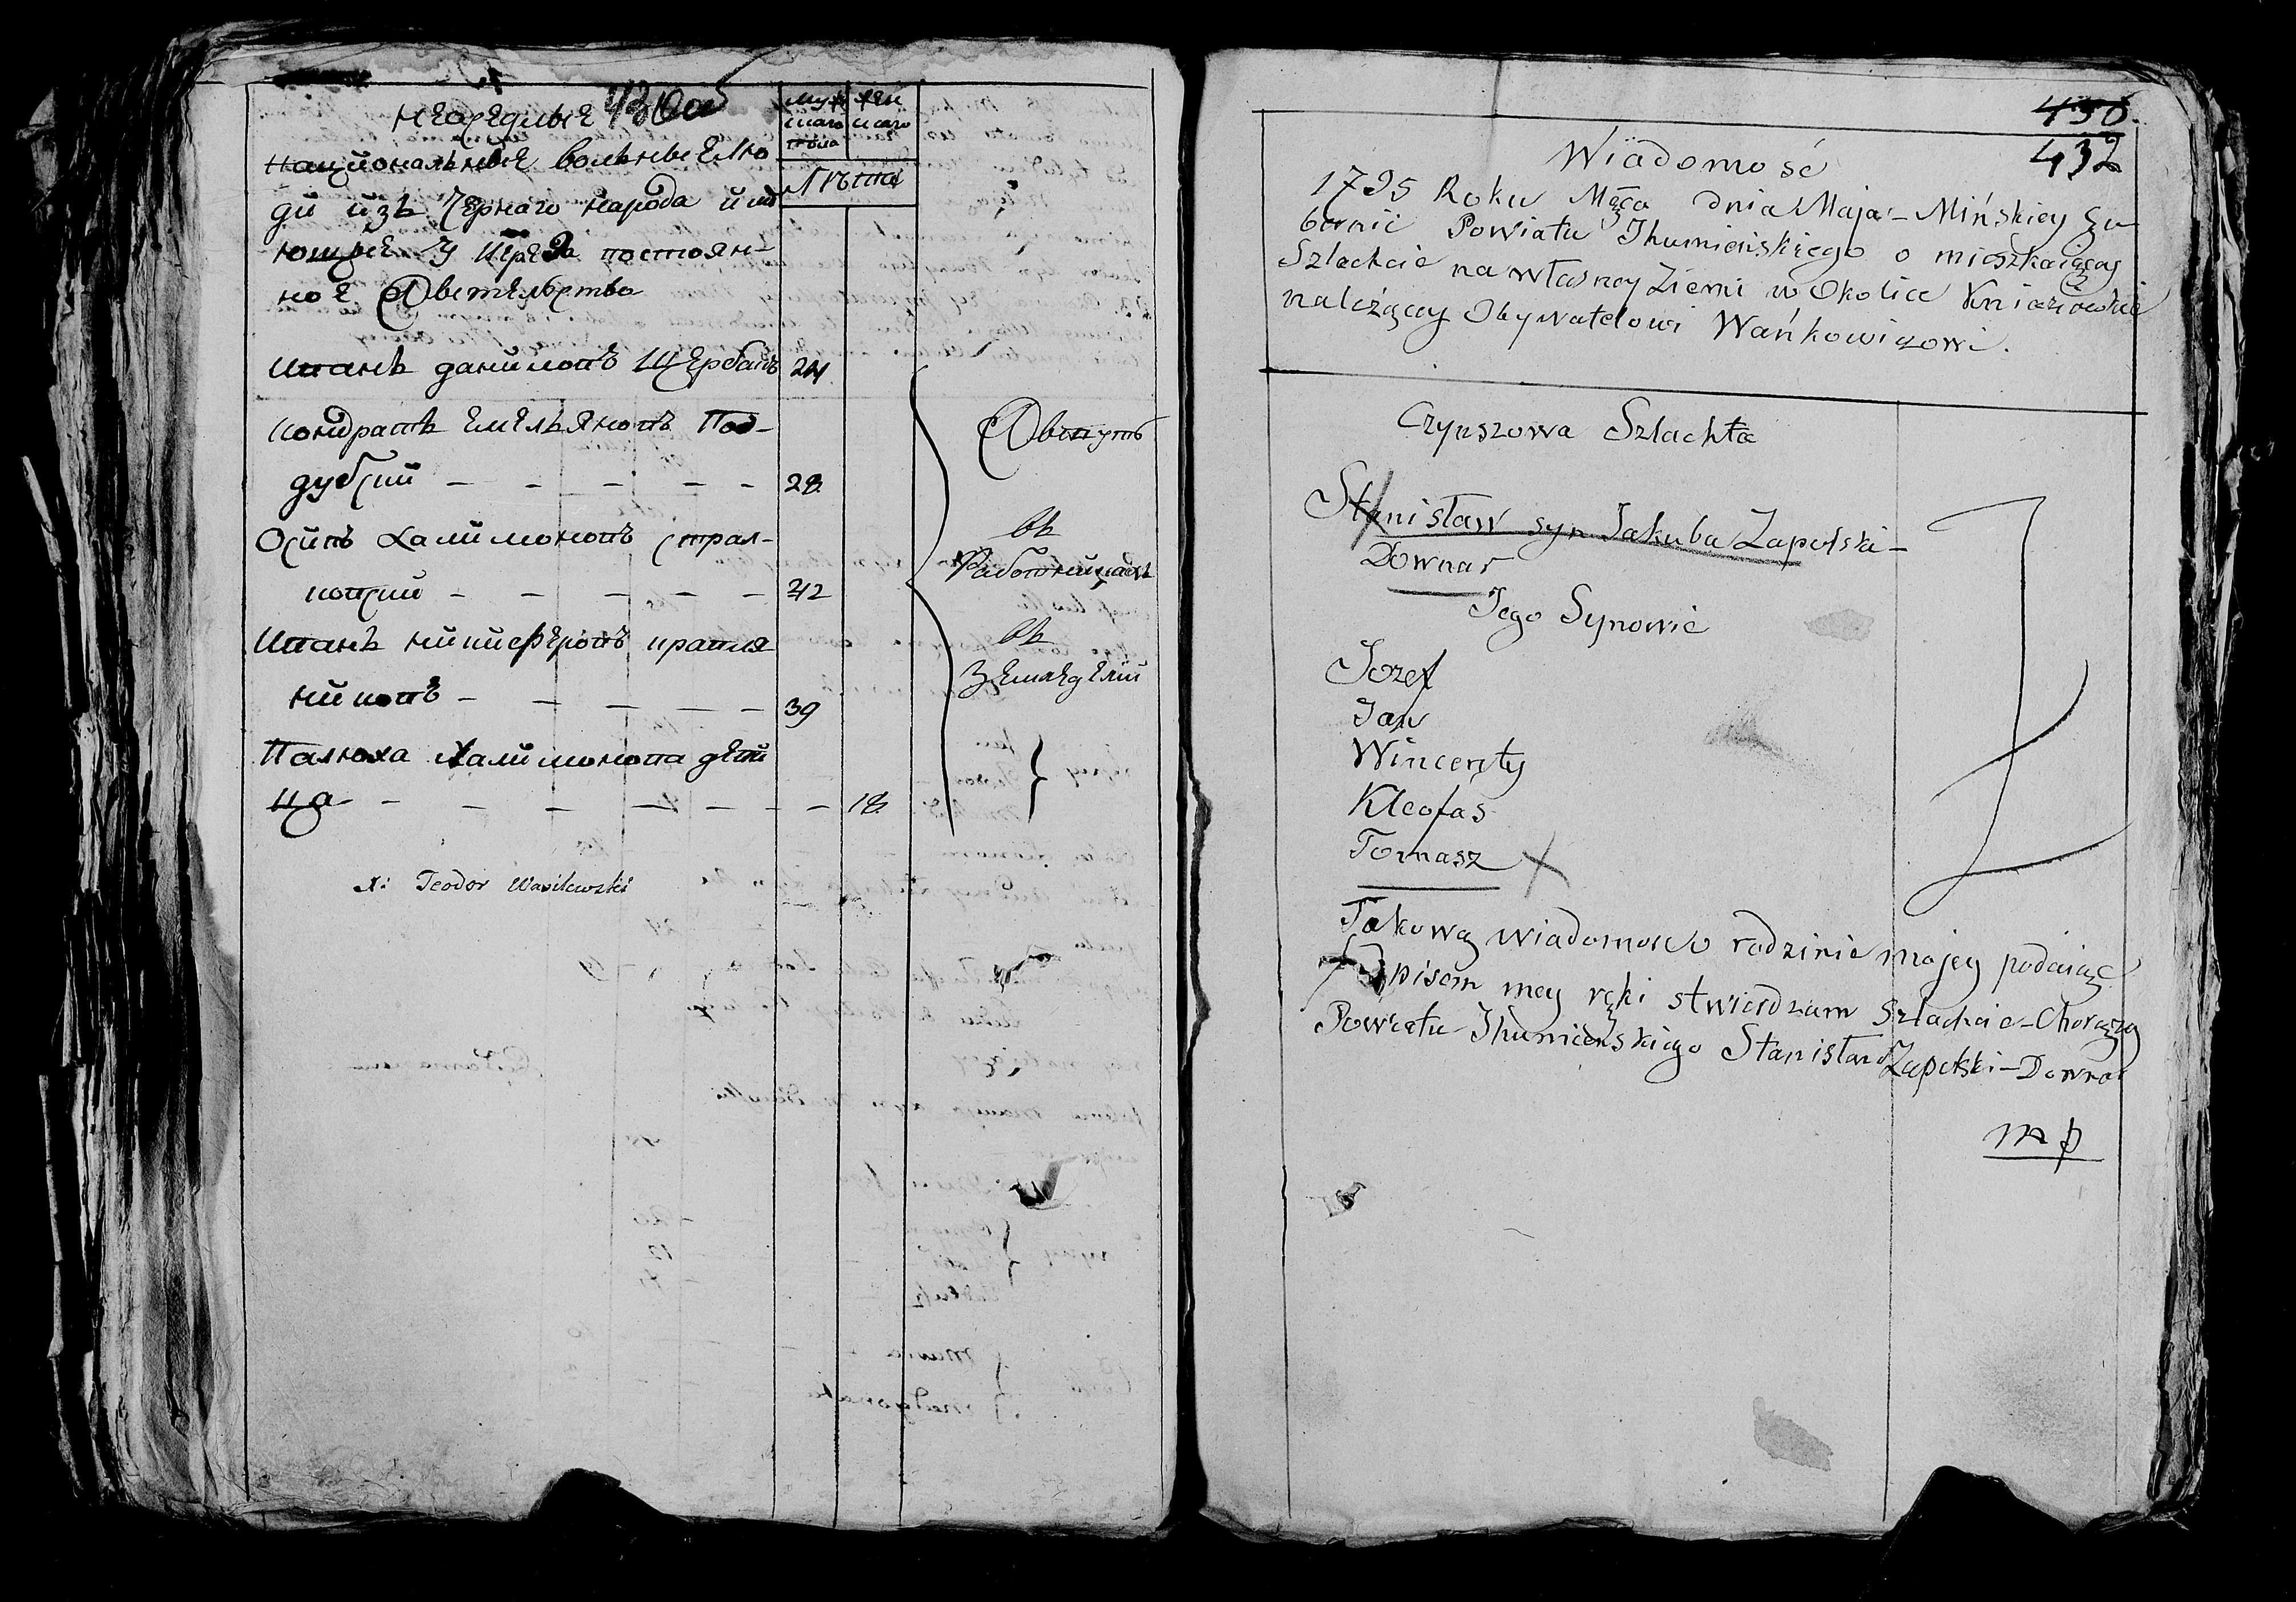 430об
неоседлые
национальные вольные лю
ди изъ чернаго народа име
ющие у кре за постоян-
ное жительство
муж
скаго
пола
жен
скаго
лѣта
Иванъ даниловъ Щербакъ 24
кондратъ Емельяновъ Под-
дубский - - - - - 28
Осипъ Халимоновъ
- - - - - 42
Иванъ никифоровъ
- - - - 39
Павлюха Халимонова
- - - - - - - 18
живутъ
въ
работникахъ
въ
земледелии
X: Teodor Wasilewski
430.
432
Wiadomość
1795 Roku Męca dnia Maja - Mińskiey Gu-
bernii Powiatu Ihumieńskiego o mieszkaiącey
Szlachcie na własney Ziemi w Okolice Kniaziowkie
należący Obywatelowi Wańkowiczowi.
Czynszowa Szlachta
Stanisław syn Jakuba Zapolski-
Downar
Jego Synowie
Jozef
Jan
Wincenty
Kleofas
Tomasz
Takową wiadomosc o rodzinie mojey podaiąc
pisem mey ręki stwierdzam Szlachcic-Chorąży
Powiatu Ihumieńskiego Stanisław Zapolski-Downar
mp